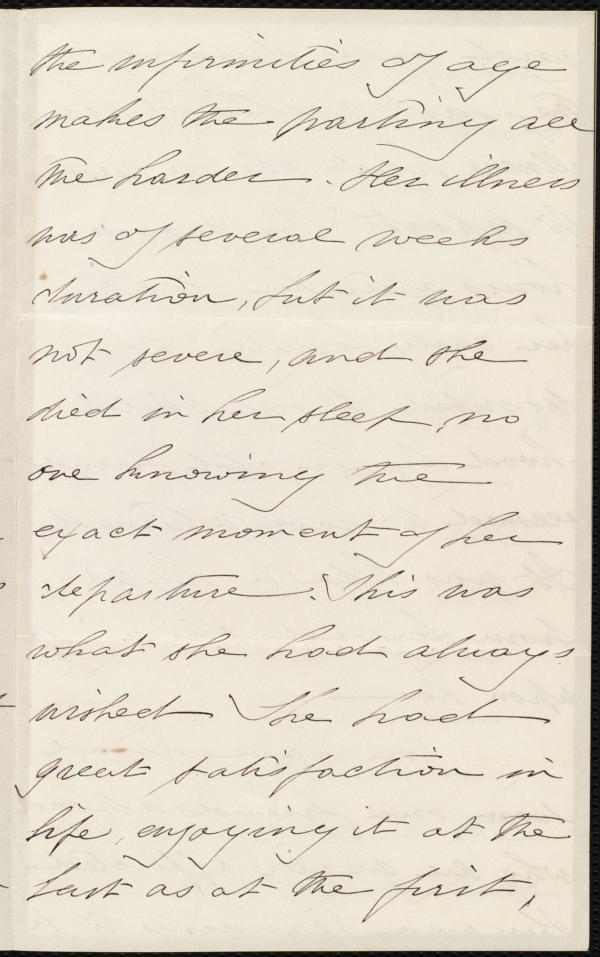 the infirmities of age
makes the parting all
the harder. Her illness
was of several weeks
duration, but it was
not severe, and she
died in her sleep, no
one knowing the
exact moment of her
departure. This was
what she had always
wished She had
great satisfaction in
life, enjoying it at the
last as at the first,